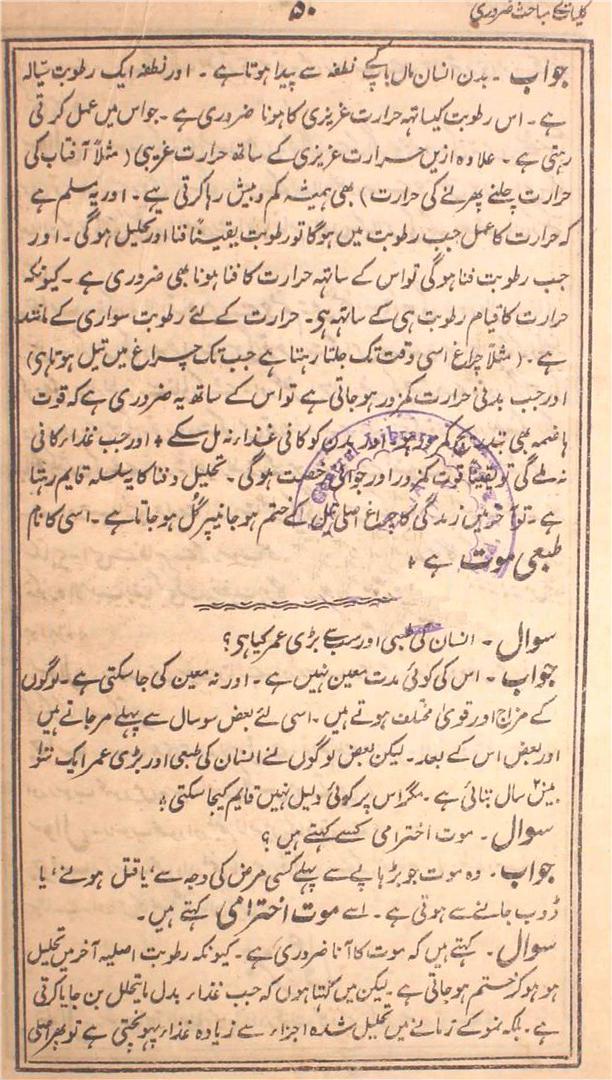 کلیات کے مباحث ضروری
۵۰
جواب ۔ بدن انسان ماں باپ کے نطفہ سے پیدا ہوتا ہے ۔ اور نطفہ ایک رطوبت سیّالہ
ہے ۔ اس رطوبت کیساتہہ حرارت غریزی کا ہونا ضروری ہے ۔ جو اس میں عمل کرتی
رہتی ہے ۔ علاوہ ازیں حرارت غریزی کے ساتھ حرارت غریبی ( مثلاً آفتاب کی
حرارت چلنے پھرنے کی حرارت ) بھی ہمیشہ کم و بیش رہا کرتی ہے ۔ اور یہ مسلم ہے
کہ حرارت کا عمل جب رطوبت میں ہوگا تو رطوبت یقیناً فنا اور تحلیل ہوگی ۔ اور
جب رطوبت فنا ہوگی تو اس کے ساتہہ حرارت کا فنا ہونا بھی ضروری ہے ۔ کیونکہ
حرارت کا قیام رطوبت ہی کے ساتہہ ہی ۔ حرارت کے لئے رطوبت سواری کے مانند
ہے ۔ ( مثلاً چراغ اسی وقت تک جلتا رہتا ہے جب تک چراغ میں تیل ہوتا ہی )
اور جب بدنی حرارت کمزور ہو جاتی ہے تو اس کے ساتھ یہ ضروری ہے کہ قوت
ہاضمہ بھی بتدریج کمزور ہو ۔ اور بدن کو کافی غذا نہ مل سکے ۔ اور جب غذاء کافی
نہ ملے گی تو یقیناً قوت کمزور اور جوانی رخصت ہوگی ۔ تحلیل و فنا کا یہ سلسلہ قایم رہتا
ہے ۔ تو آخر میں زندگی کا چراغ اصلی تیل کے ختم ہو جانیپر گُل ہو جاتا ہے ۔ اسی کا نام
طبعی موت ہے ۔
سوال ۔ انسان کی طبعی اور سب سے بڑی عمر کیا ہی ؟
جواب ۔ اس کی کوئی مدت معین نہیں ہے ۔ اور نہ معین کی جا سکتی ہے ۔ لوگوں
کے مزاج اور قویٰ مختلف ہوتے ہیں ۔ اسی لئے بعض سو سال سے پہلے مر جاتے ہیں
اور بعض اس کے بعد ۔ لیکن بعض لوگوں نے انسان کی طبعی اور بڑی عمر ایک سَو
بیس سال بتائی ہے ۔ مگر اس پر کوئی دلیل نہیں قایم کیجا سکتی ۔
سوال ۔ موت اخترامی کسے کہتے ہیں ؟
جواب ۔ وہ موت جو بڑہاپے سے پہلے کسی مرض کی وجہ سے ، یا قتل ہونے ، یا
ڈوب جانے سے ہوتی ہے ۔ اسے موت اخترامی کہتے ہیں ۔
سوال ۔ کہتے ہیں کہ موت کا آنا ضروری ہے ۔ کیونکہ رطوبت اصلیہ آخر میں تحلیل
ہو ہو کر ختم ہو جاتی ہے ۔ لیکن میں کہتا ہوں کہ جب غذاء بدل ما یتحلل بن جایا کرتی
ہے ۔ بلکہ نمو کے زمانے میں تحلیل شدہ اجزاء سے زیادہ غذاء پہونچتی ہے تو پھر اصلی